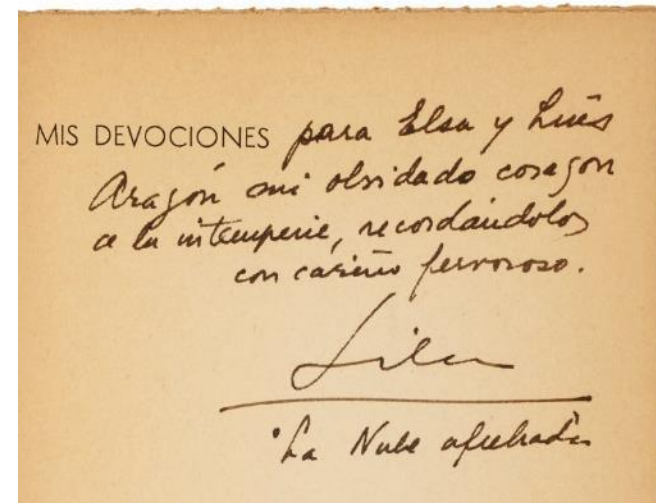 MIS DEVOCIONES para Elsa y Luis
Aragón mi olvidado corazon
a la intemperie, recordándolos
con cariño fervoroso.
Lila
"La Nube afiebrada